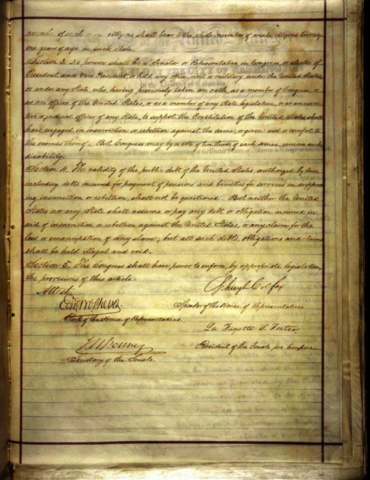 number of such citizens shall bear to the whole number of male citizens twenty
one years of age in such State.
Section 3. No person shall be a Senator or Representative in Congress, or elector of
President and Vice President, or hold any office, civil or military, under the United States,
or under any State, who, having previously taken an oath, as a member of Congress, or
as an officer of the United States, or as a member of any State legislature, or as an execu-
tive or judicial officer of any State, to support the Constitution of the United States, shall
have engaged in insurrection or rebellion against the same, or given aid or comfort to
the enemies thereof. But Congress may by a vote of two thirds of each House, remove such
disability.
Section 4. The validity of the public debt of the United States, authorized by law,
including debts incurred for payment of pensions and bounties for services in suppress-
ing insurrection or rebellion, shall not be questioned. But neither the United
States nor any State shall assume or pay any debt or obligation incurred in
aid of insurrection or rebellion against the United States, or any claim for the
loss or emancipation of any slave; but all such debts, obligations and claims
shall be held illegal and void.
Section 5. The Congress shall have power to enforce, by appropriate legislation,
the provisions of this article.
Attest
Schuyler Colfax
Edwd McPherson
Speaker of the House of Representatives
Clerk of the House of Representatives
La Fayette S. Foster
J W Forney
President of the Senate pro tempore
Secretary of the Senate